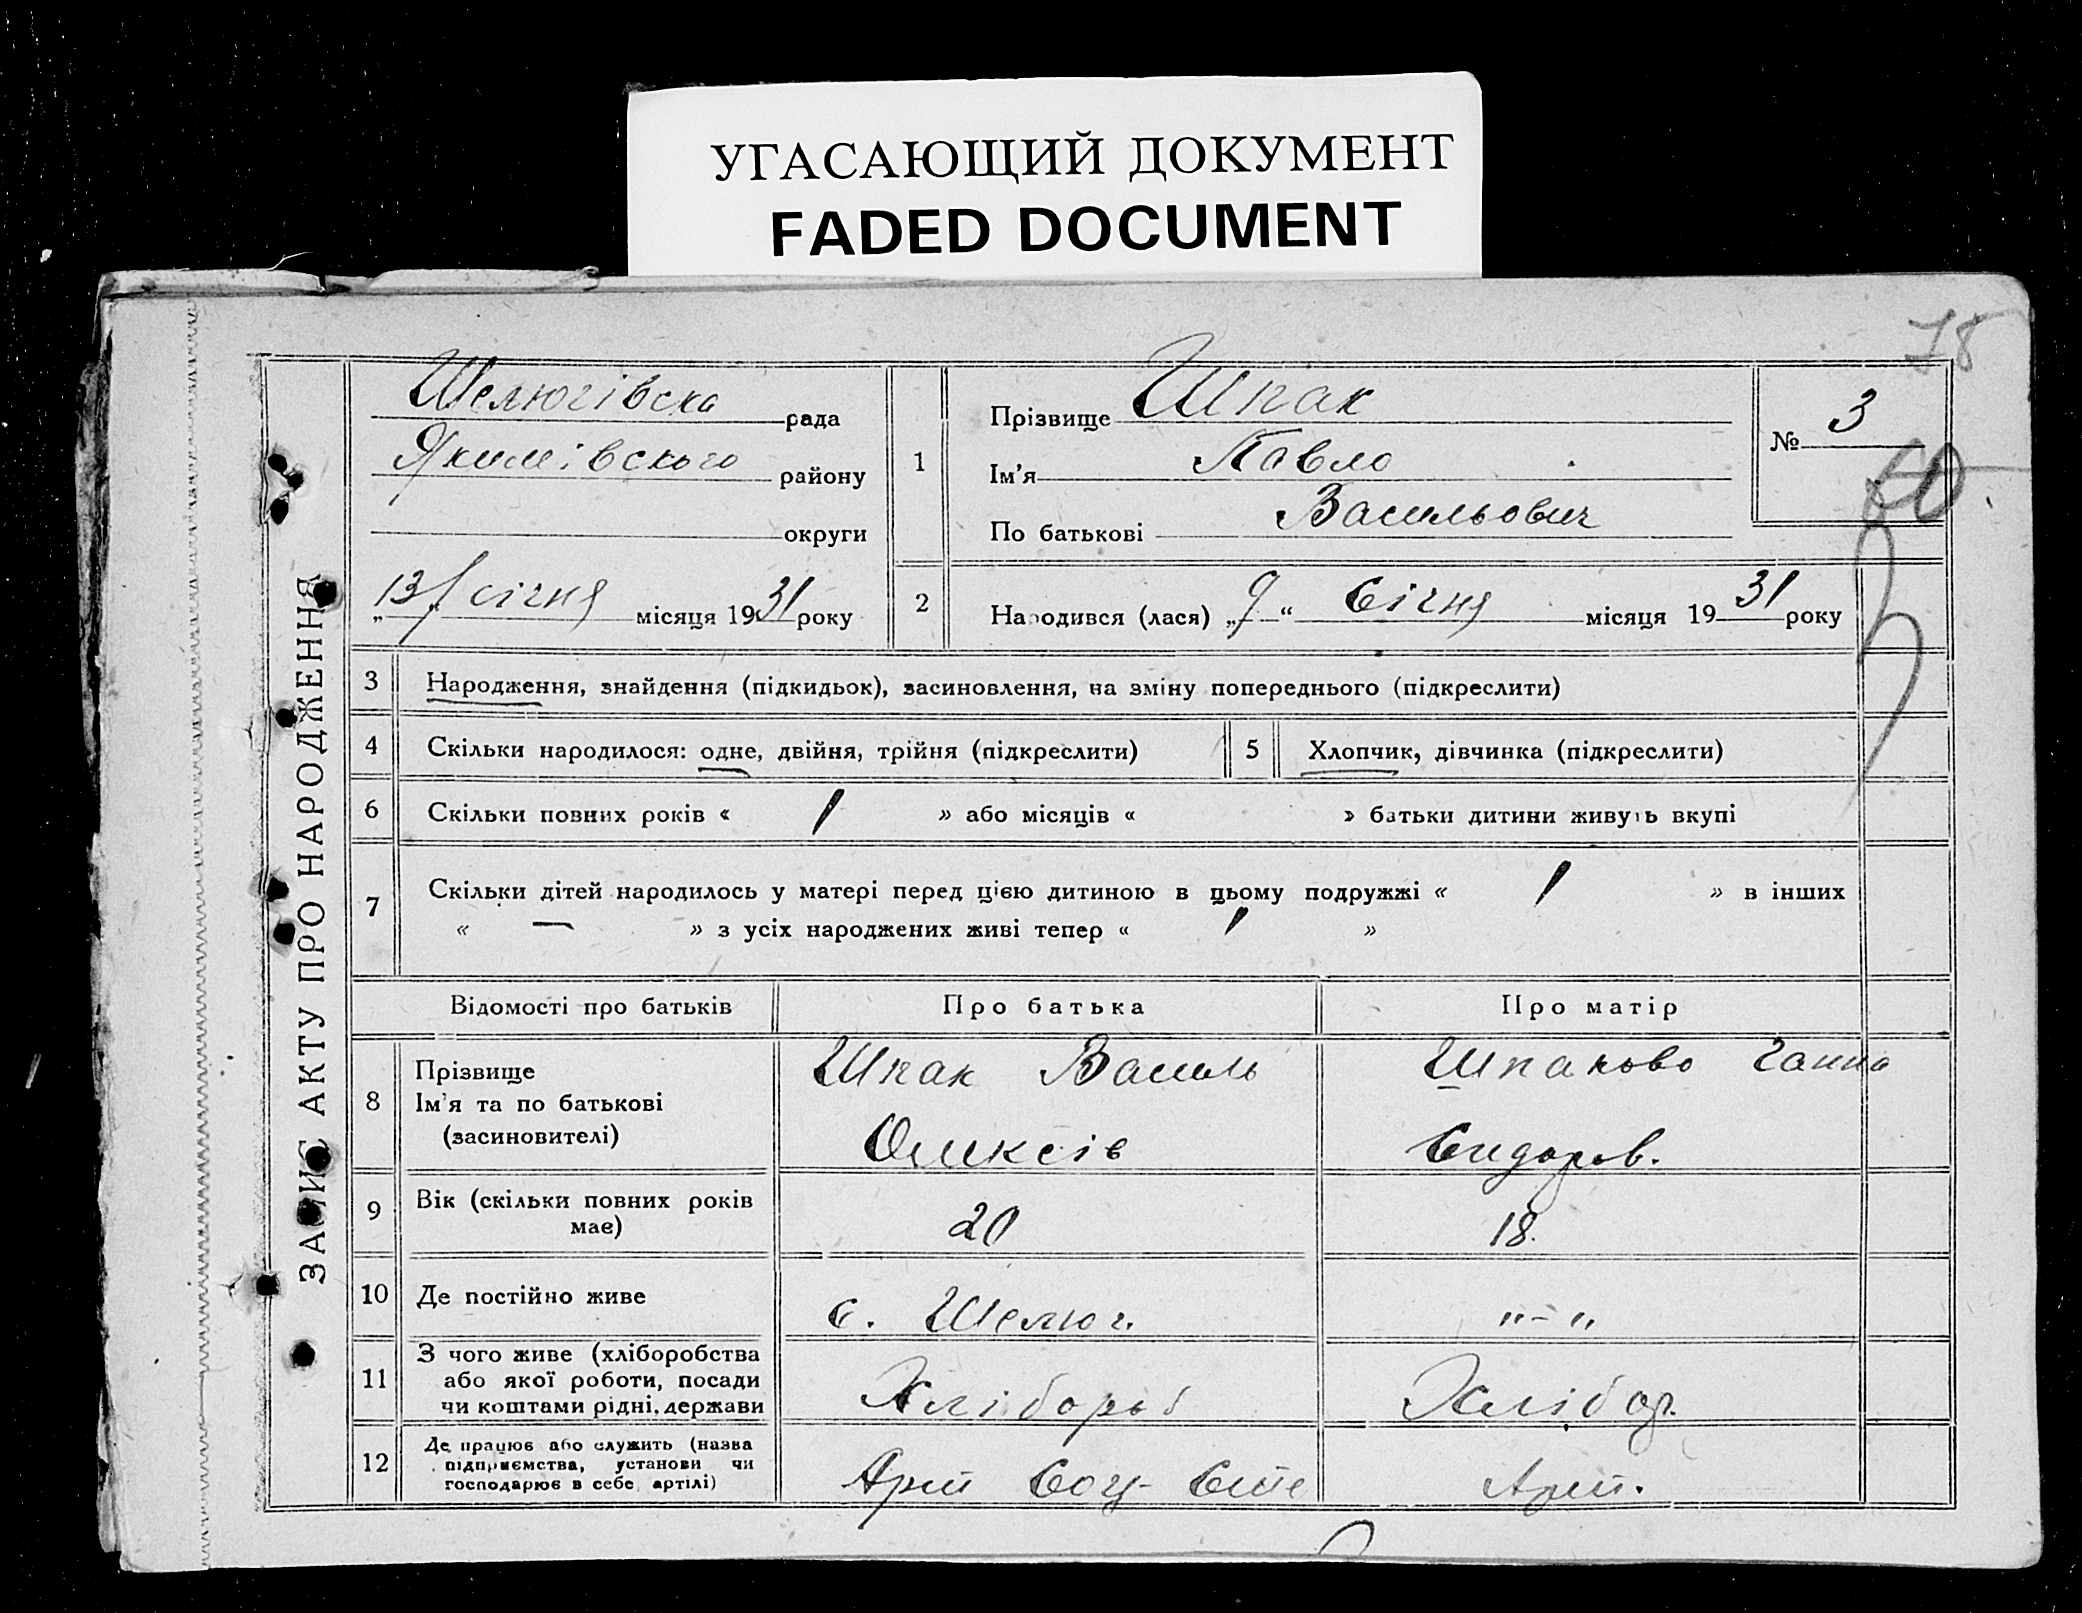 УГАСАЮЩИЙ ДОКУМЕНТ
FADED DOCUMENT
78
ЗАПИС АКТУ ПРО НАРОДЖЕННЯ
Шелюгівска рада
Якимівського району
округи
„13“ січня місяця 1931 року
1
Прізвище Шпак
Ім'я Павло
По батькові Васильович
№ 3
2
Народився (лася) „9“ Січня місяця 1931 року
3 Народження, знайдення (підкидьок), засиновлення, на зміну попереднього (підкреслити)
4 Скільки народилося: одне, двійня, трійня (підкреслити)
5 Хлопчик, дівчинка (підкреслити)
6 Скільки повних років « 1 » або місяців « » батьки дитини живуть вкупі
7 Скільки дітей народилось у матері перед цією дитиною в цьому подружжі « 1 » в інших
« — » з усіх народжених живі тепер « 1 »
Відомості про батьків Про батька Про матір
8 Прізвище
Ім'я та по батькові
(засиновителі)
Шпак Василь
Олексів
Шпаково Ганна
Сидоров.
9 Вік (скільки повних років
має)
20
18.
10 Де постійно живе
с. Шелюг.
„ – „
11 З чого живе (хліборобства
або якої роботи, посади
чи коштами рідні, держави
Хлібороб
Хлібор.
12 Де працює або служить (назва
підприємства, установи чи
господарює в себе, артілі)
Арт Соц-
Арт.